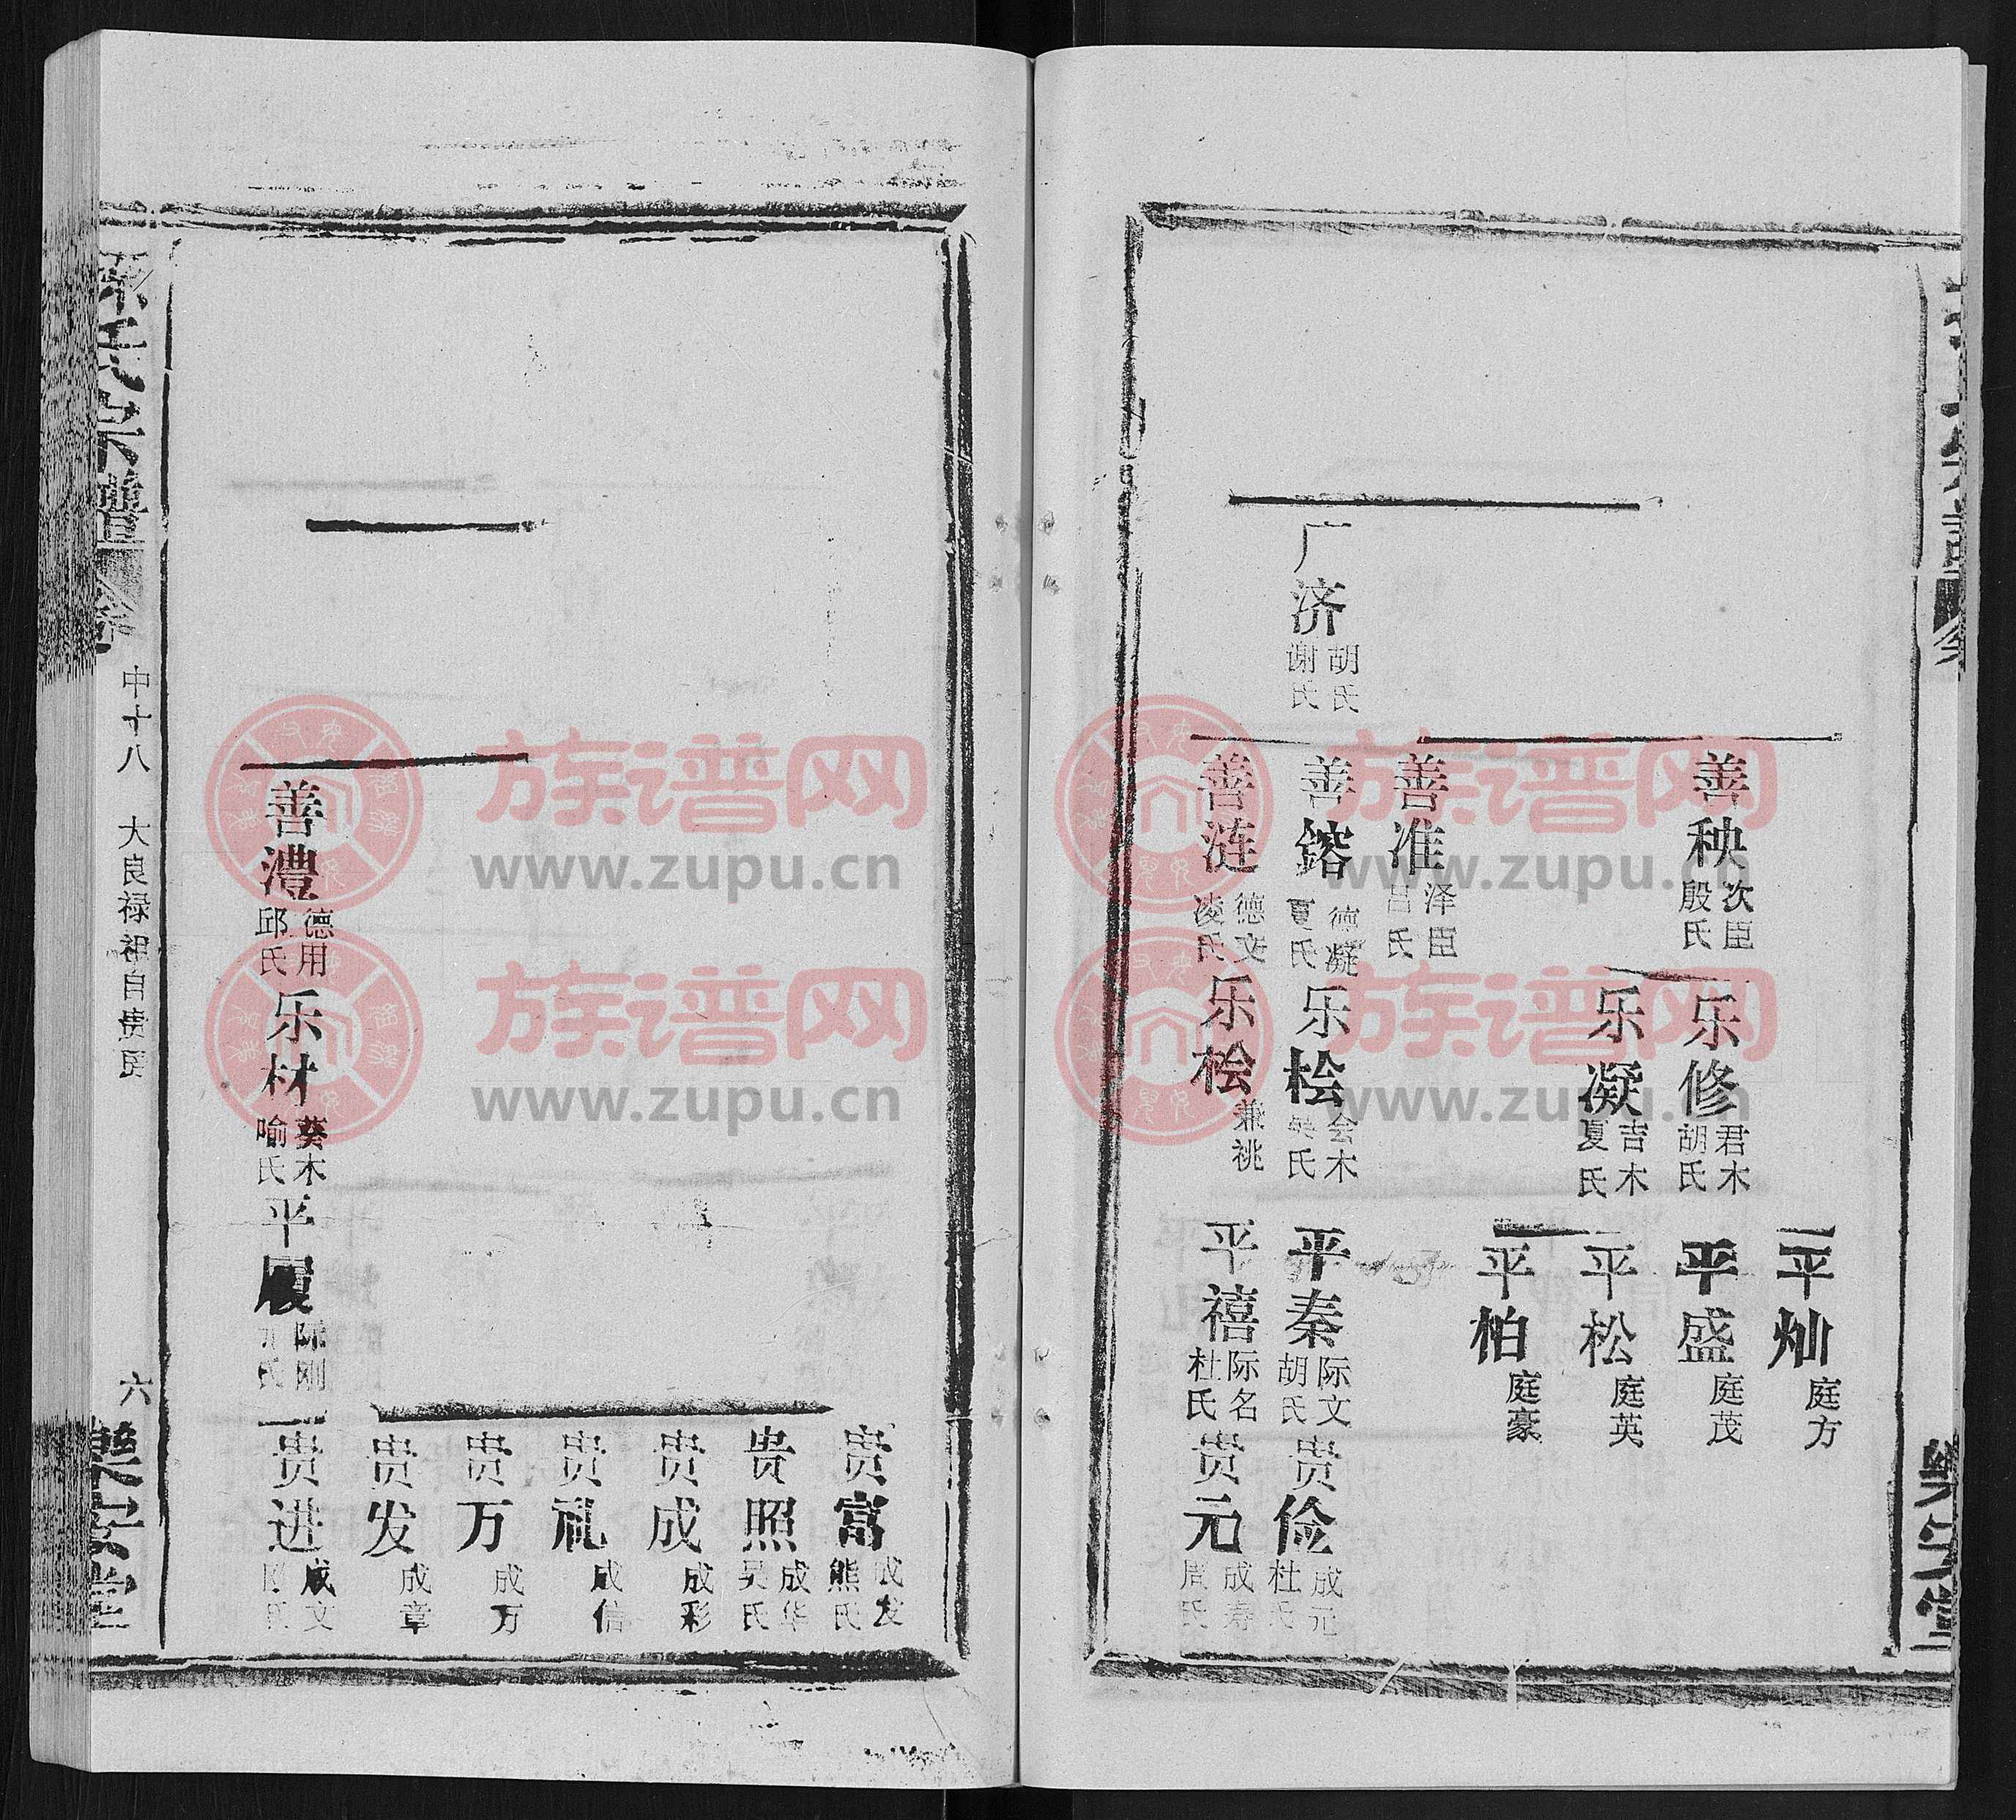 广济 胡氏 谢氏
善秧 次臣 殷氏
善准 泽臣 吕氏
善鎔 德凝 夏氏
善涟 德文 凌氏
乐修 君木 胡氏
乐凝 吉木 夏氏
乐桧 会木 吴氏
乐桧 兼祧
平灿 庭方
平盛 庭茂
平松 庭英
平柏 庭豪
平秦 际文 胡氏
平禧 际名 杜氏
贵俭 成元 杜氏
贵元 成寿 周氏
善澧 德用 邱氏
乐材 葵木 喻氏
平履 际刚
贵富 成发 熊氏
贵照 成华 吴氏
贵成 成彩
贵礼 成信
贵万 成万
贵发 成章
贵进 成文
氏宗譜
中十八 大良禄祖自贵房
六
樂安堂
族谱网
www.zupu.cn
族谱网
www.zupu.cn
族谱网
www.zupu.cn
族谱网
www.zupu.cn